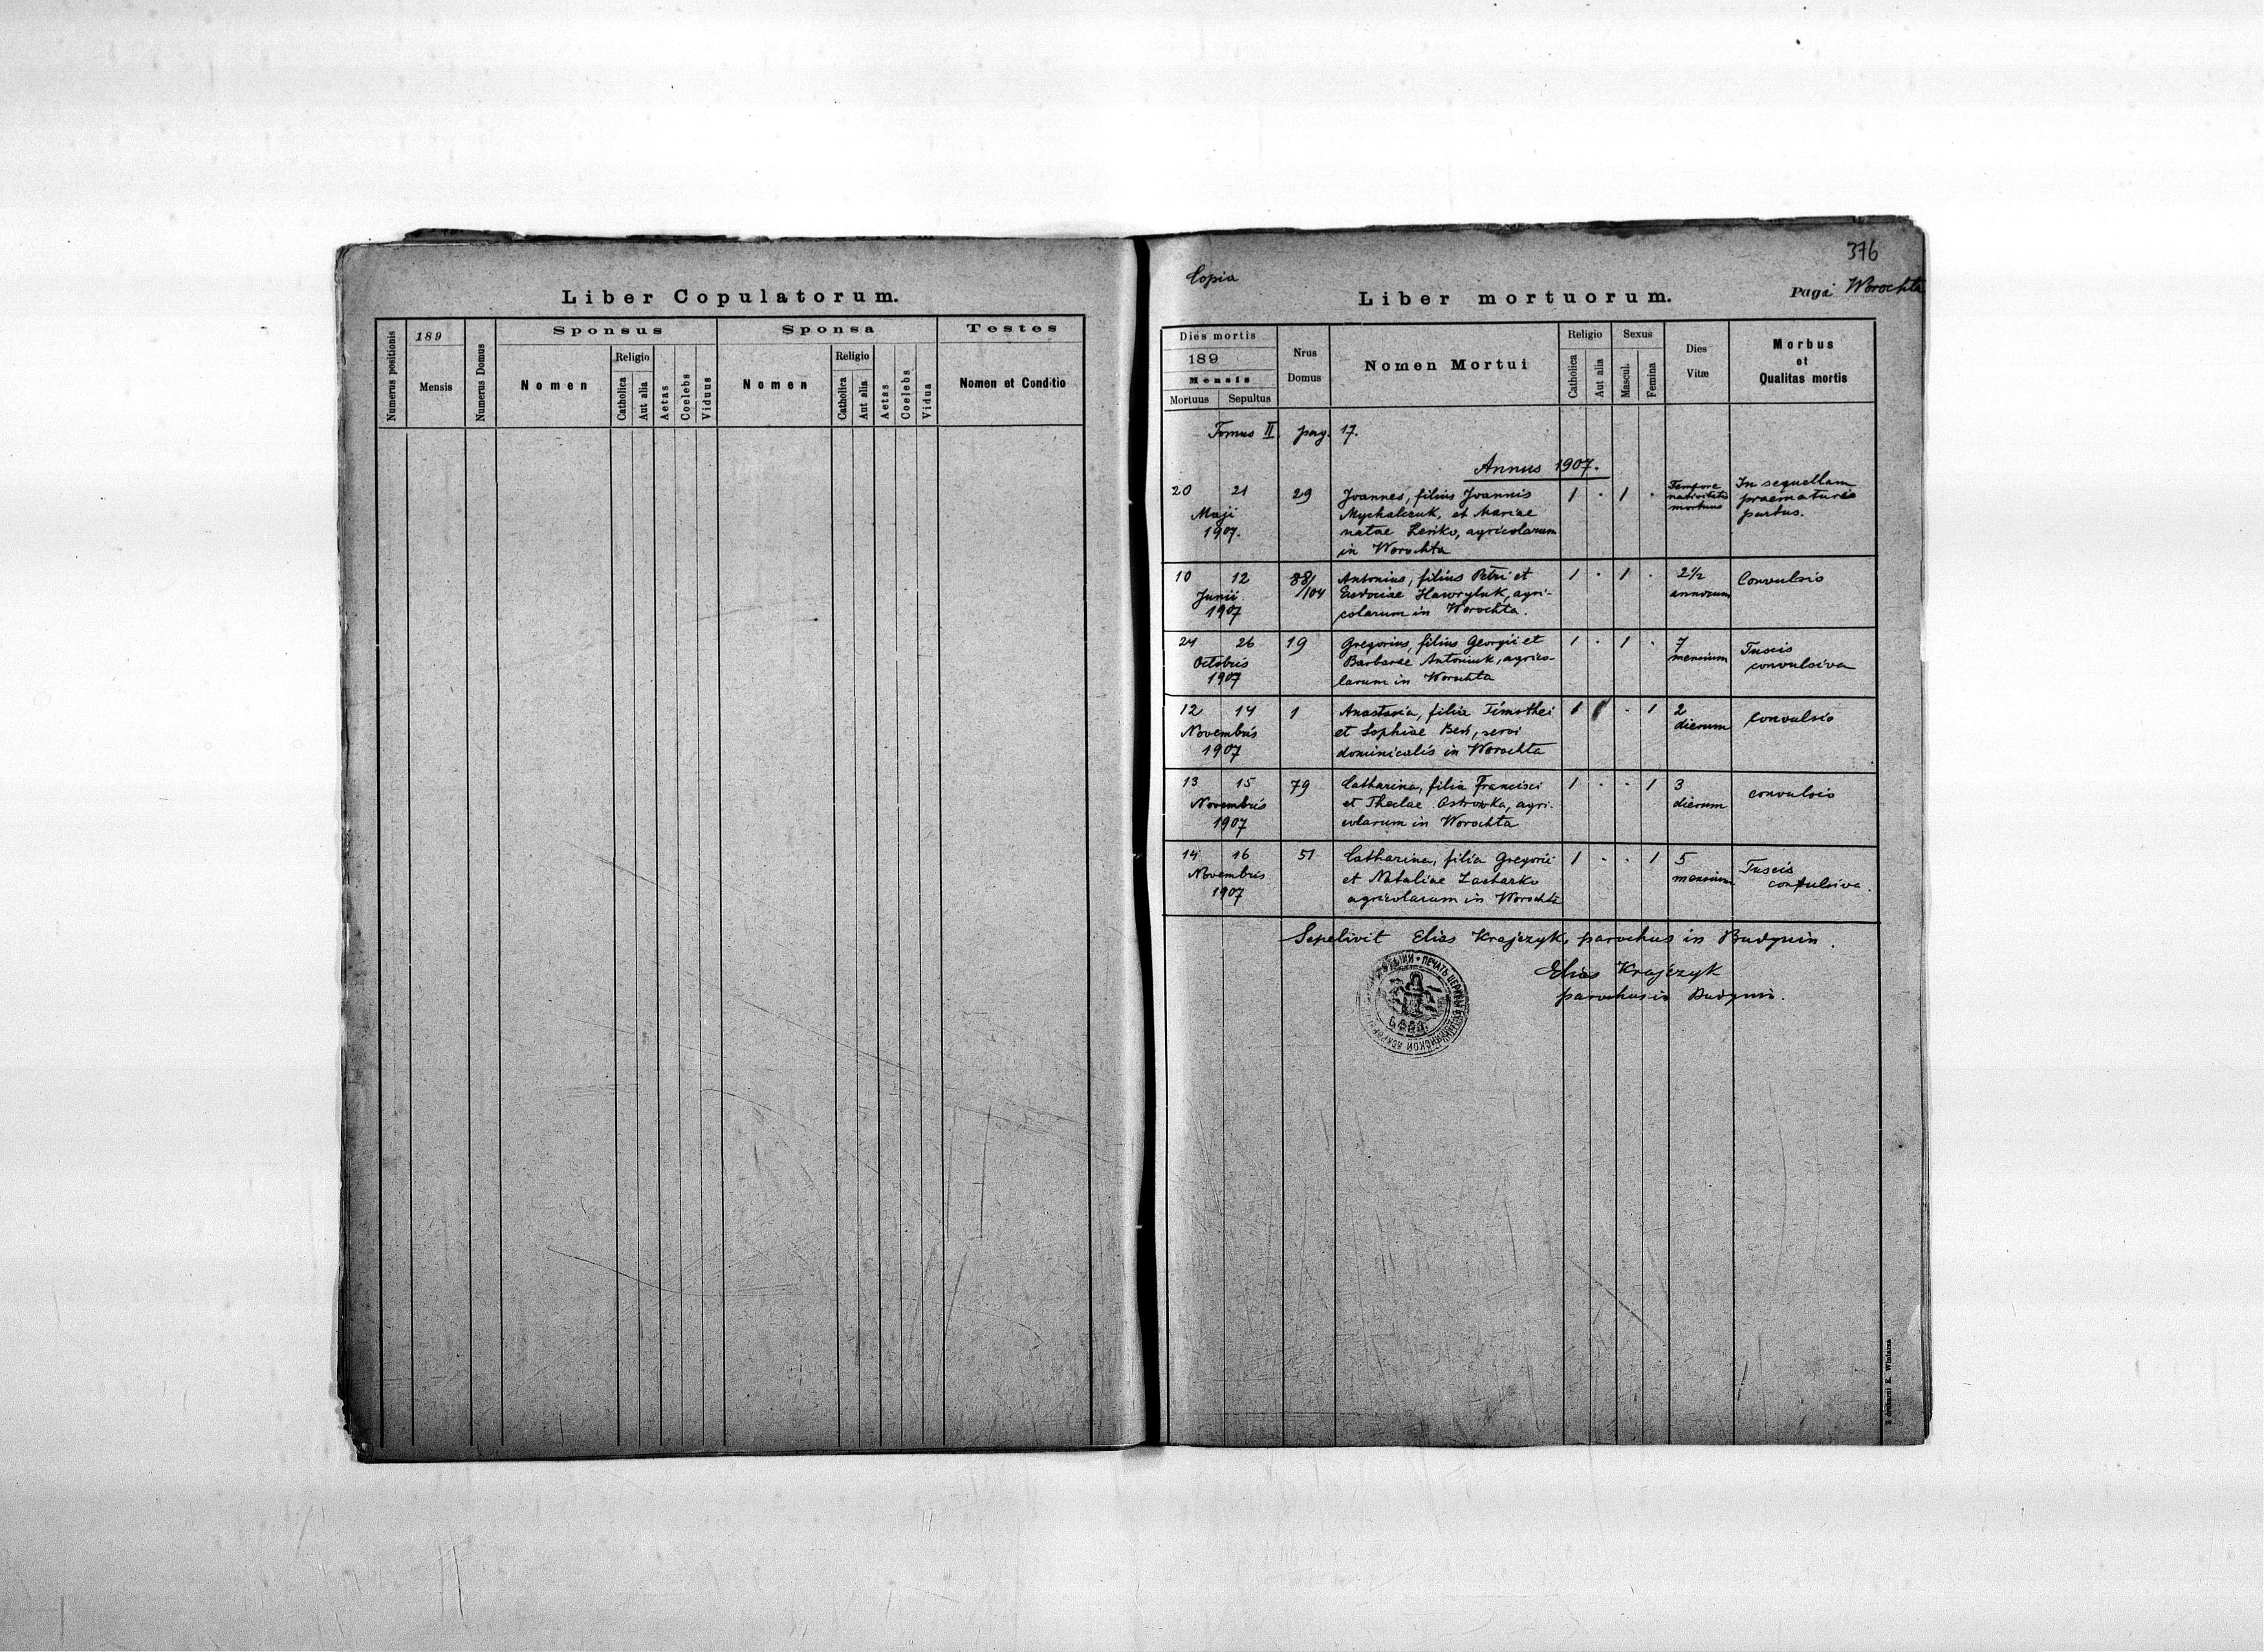 Liber Copulatorum.
Numerus positionis
189
Mensis
Numerus Domus
Sponsus
Nomen
Religio
Catholica
Aut alia
Aetas
Coelebs
Viduus
Sponsa
Nomen
Religio
Catholica
Aut alia
Aetas
Coelebs
Vidua
Testes
Nomen et Conditio
376
Copia
Liber mortuorum.
Pagi Worochta
Dies mortis
189
Mensis
Mortuus Sepultus
Nrus
Domus
Nomen Mortui
Religio
Catholica
Aut alia
Sexus
Mascul.
Femina
Dies
Vitæ
Morbus
et
Qualitas mortis
Tomus II. pag. 17.
Annus 1907.
20 21
Maji
1907.
29
Joannes, filius Joannis
Mychalczuk, et Mariae
natae Leńko, agricolarum
in Worochta
1 . 1 .
Tempore
nativitatis
mortuus
In sequellam
praematuris
partus.
10 12
Junii
1907
88/104
Antonius, filius Petri et
Eudociae Hawryluk, agri-
colarum in Worochta.
1 . 1 .
2 1/2
annorum
Convulsio
24 26
Octobris
1907
19
Gregorius, filius Georgii et
Barbarae Antoniuk, agrico-
larum in Worochta
1 . 1 .
7
mensium
Tussis
convulsiva
12 14
Novembris
1907
1
Anastasia, filia Timothei
et Sophiae, servi
dominicalis in Worochta
1 . 1
2
dierum
Convulsio
13 15
Novembris
1907
79
Catharina, filia Francisci
et Theclae Ostrowka, agri-
colarum in Worochta
1 . . 1
3
dierum
convulsio
14 16
Novembris
1907
51
Catharina, filia Gregorii
et Nataliae Zacharko
agricolarum in Worochta
1 . . 1
5
mensium
Tussis
convulsiva.
Sepelivit Elias Krajczyk, parochus in Budynin.
Elias Krajczyk
parochus in Budynin.
ПЕЧАТЬ ЦЕРКВИ
Z drukarni E. Winiarza